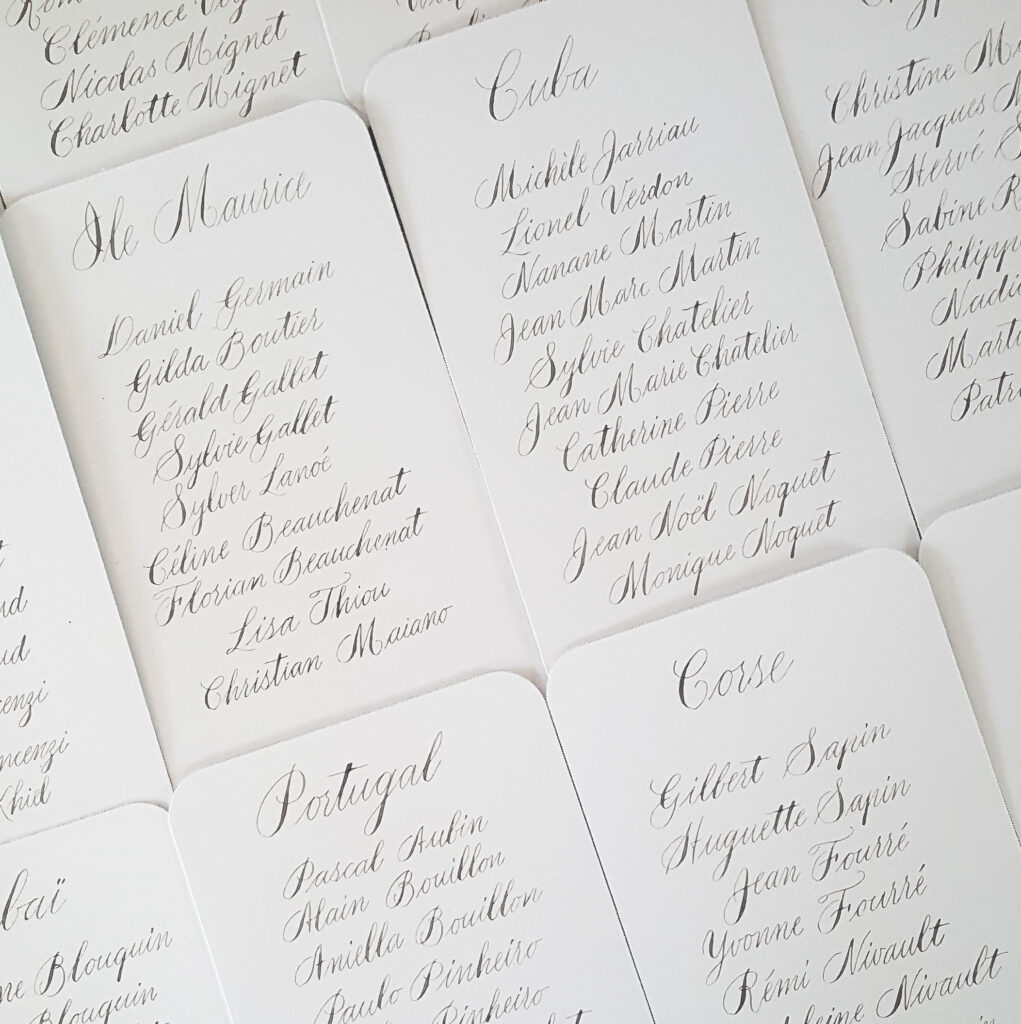 Clémence
Nicolas Mignet
Charlotte Mignet
Île Maurice
Daniel Germain
Gilda Boutier
Gérald Gallet
Sylvie Gallet
Sylver Lanoé
Céline Beauchenat
Florian Beauchenat
Lisa Thiou
Christian Maiano
Cuba
Michèle Jarriau
Lionel Verdon
Nanane Martin
Jean Marc Martin
Sylvie Chatelier
Jean Marie Chatelier
Catherine Pierre
Claude Pierre
Jean Noël Noquet
Monique Noquet
Christine
Jean Jacques
Hervé
Sabine
Portugal
Pascal Aubin
Alain Bouillon
Aniella Bouillon
Paulo Pinheiro
Pinheiro
Corse
Gilbert Sapin
Huguette Sapin
Jean Fourré
Yvonne Fourré
Rémi Nivault
Nivault
Blouquin
Blouquin